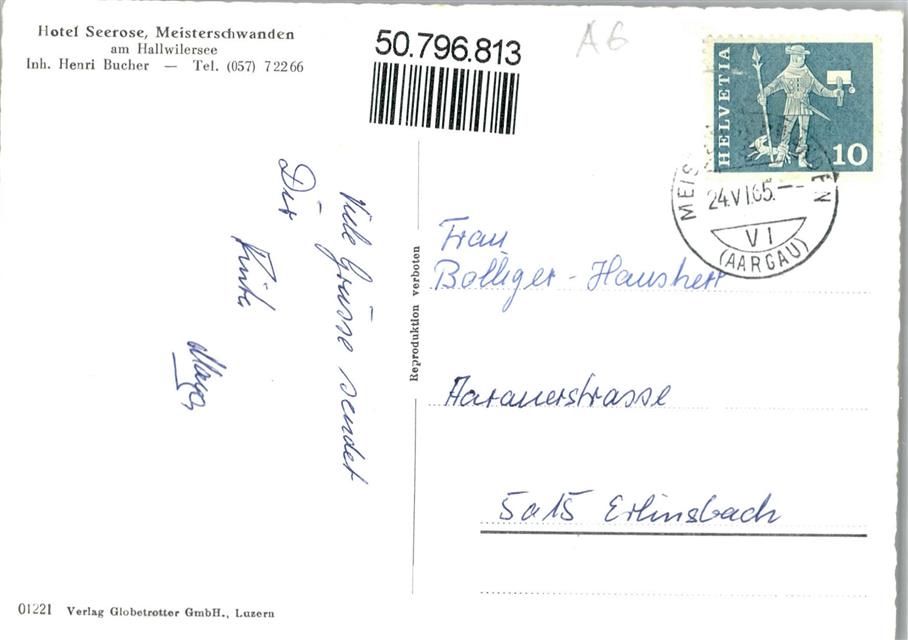 Hotel Seerose, Meisterschwanden
am Hallwilersee
Inh. Henri Bucher — Tel. (057) 7 22 66
50.796.813
A6
HELVETIA
10
MEIS DEN
24.VI.65.--
VI
(AARGAU)
Viele Grüsse sendet
Dir
Reproduktion verboten
Frau
Bolliger - Hausherr
Aarauerstrasse
5015 Erlinsbach
01221 Verlag Globetrotter GmbH., Luzern